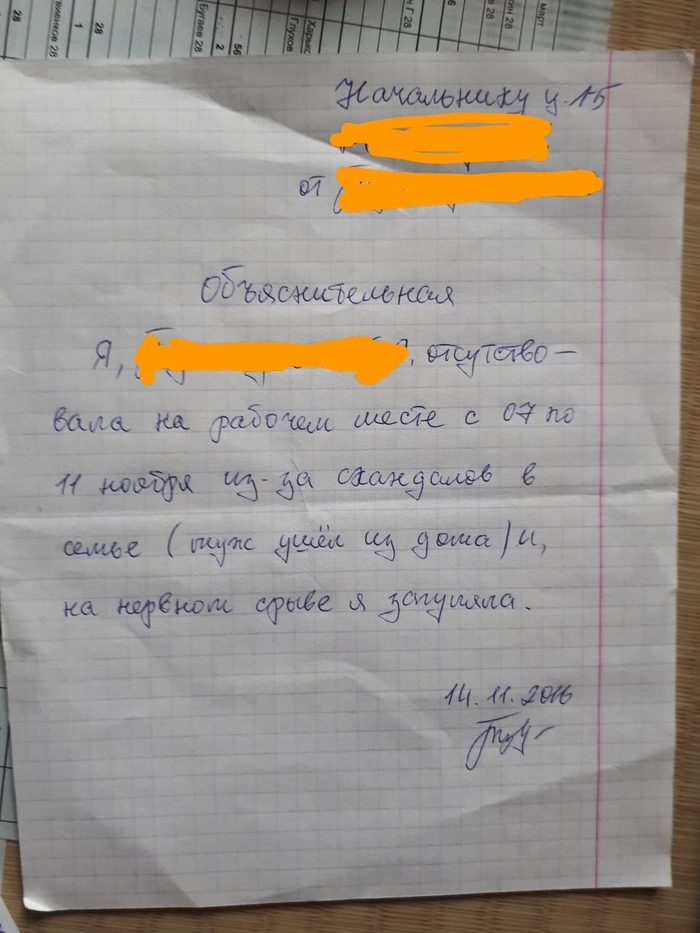 март
28
28
1
28
Бугаев 28
2
56
Глухов
28
6
28
28
Начальнику ц.15
от
Объяснительная
Я, отсутство-
вала на рабочем месте с 07 по
11 ноября из-за скандалов в
семье (муж ушёл из дома) и,
на нервном срыве я запуляла.
14.11.2016